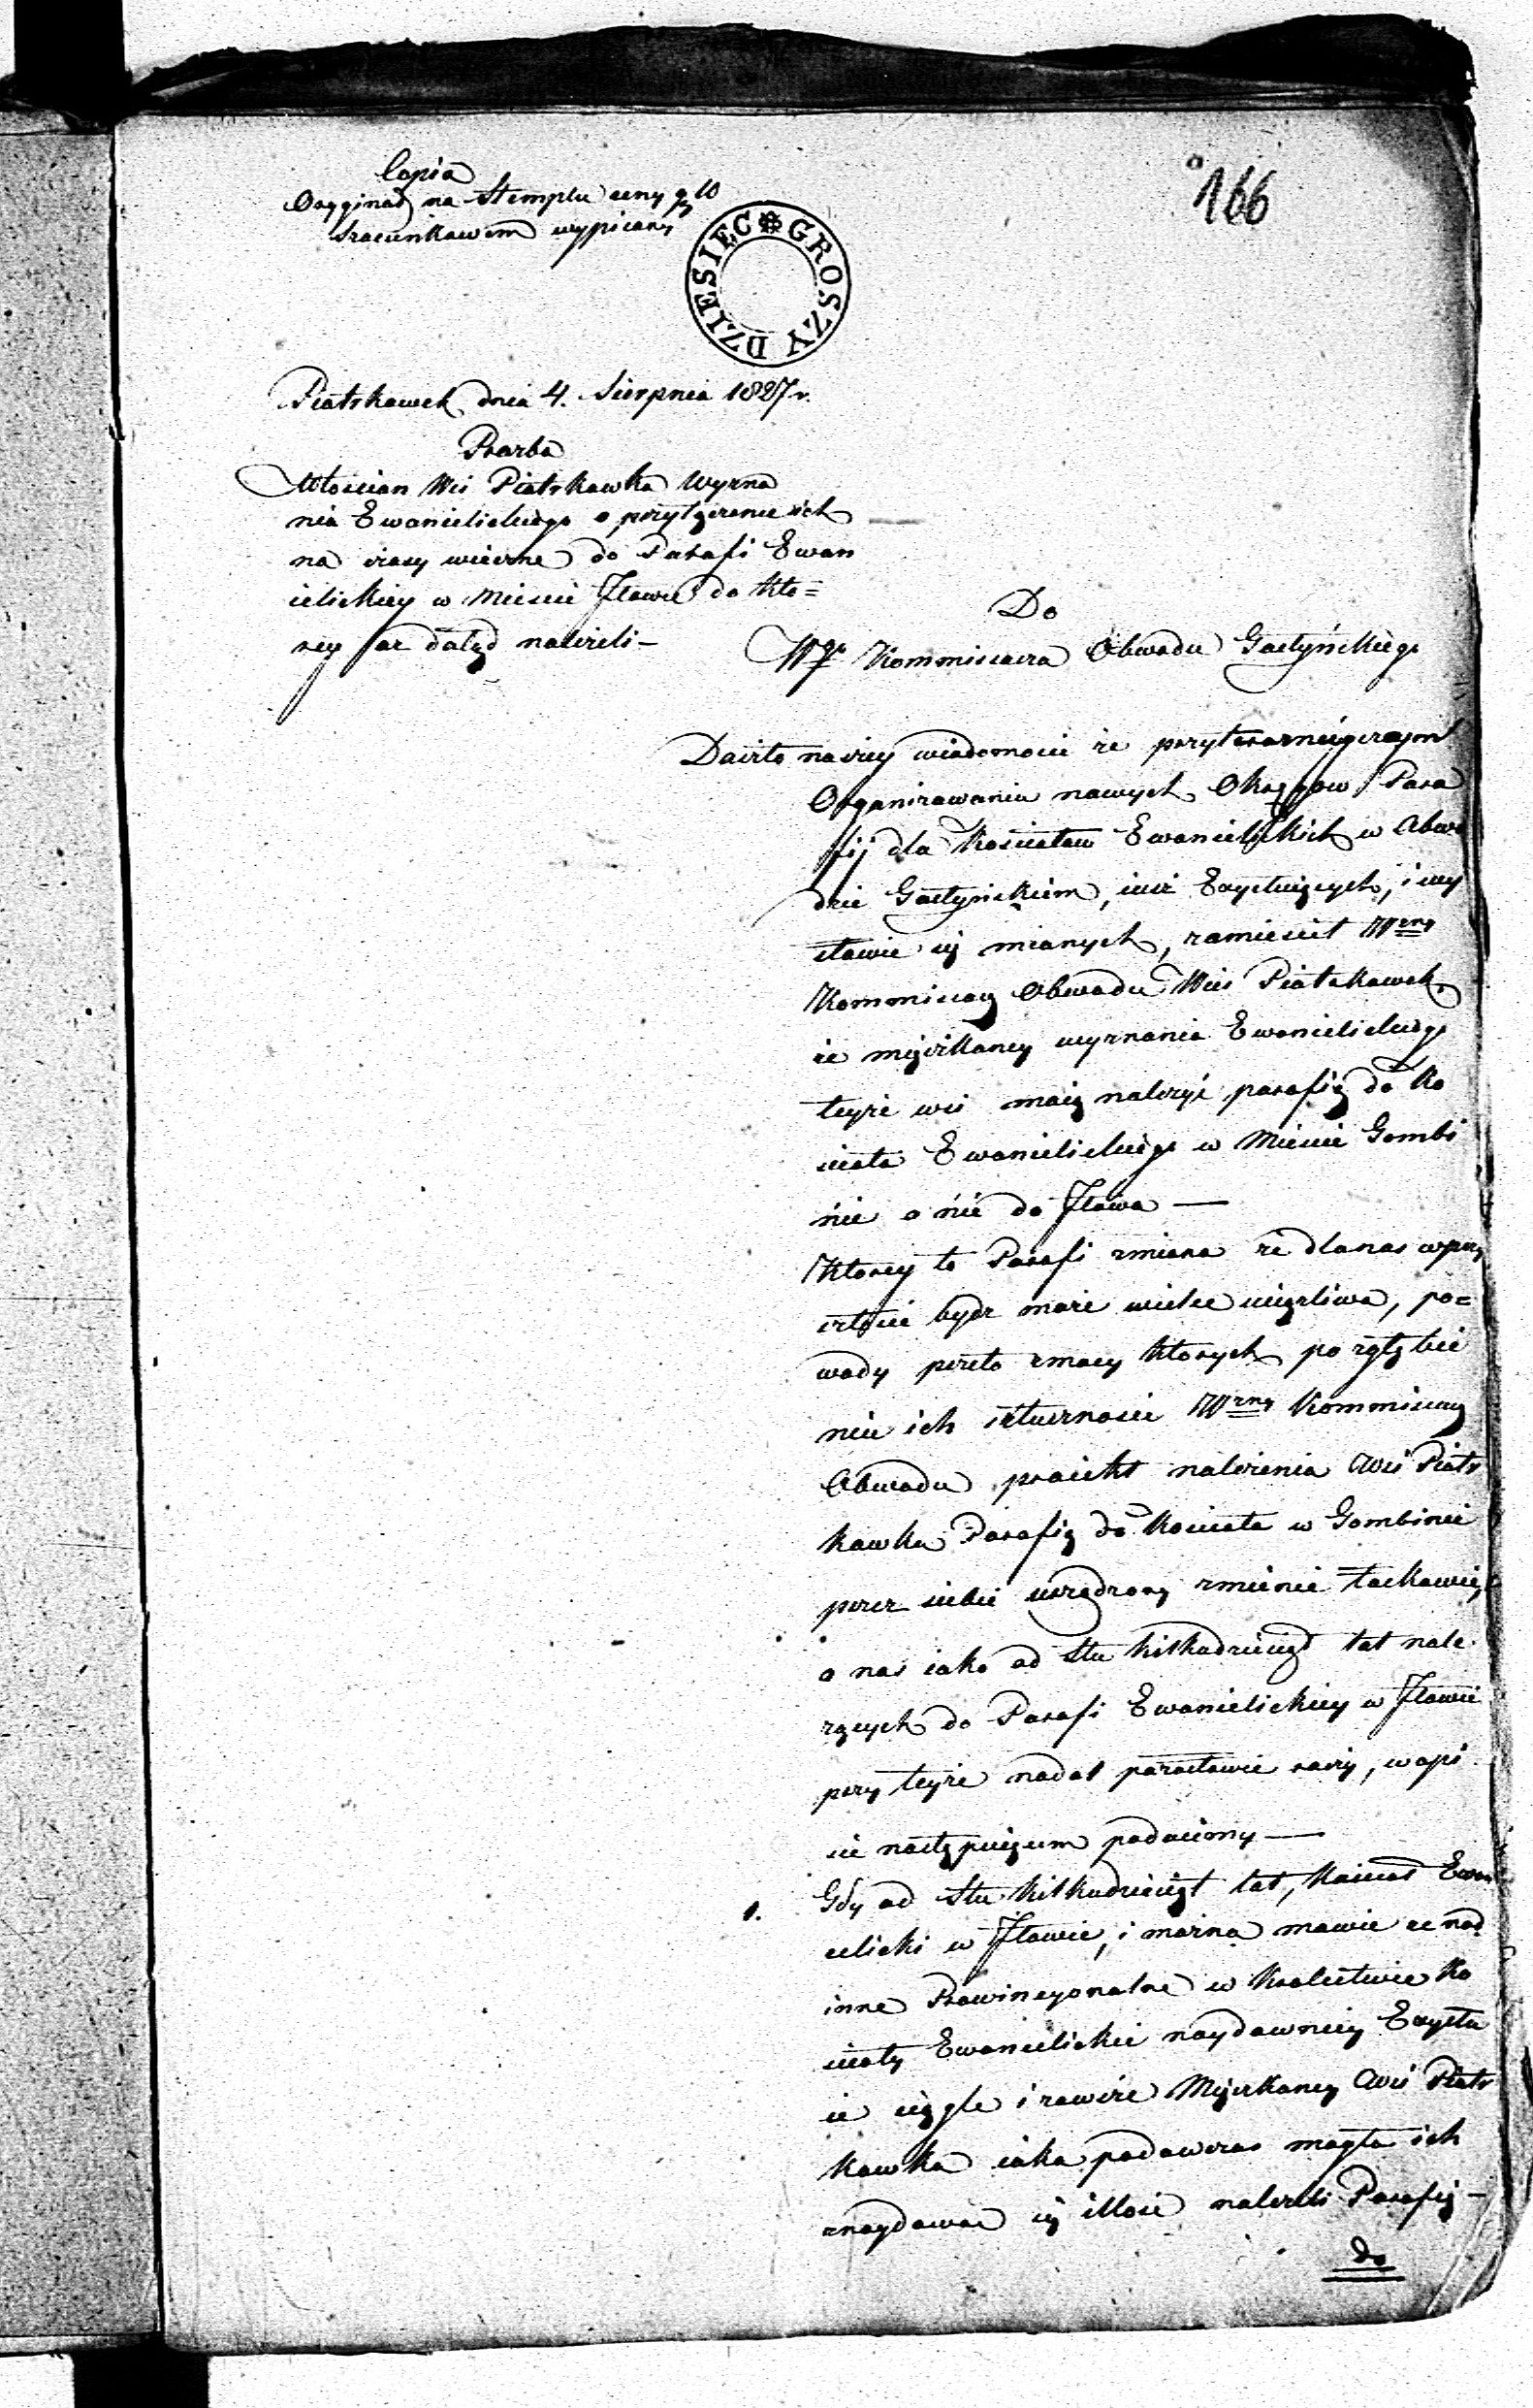 Copia
Oryginał na Stemplu ceny gr 10
Szacunkowem wypisany
166
DZIESIĘC GROSZY
Piotrkowek dnia 4. Sierpnia 1827 r.
Prozba
Włościan Wsi Piotrkowka Wyzna
nia Ewanielickiego o przyłączenie ich
na czasy wieczne do Parafi Ewan
ielickiey w Mieście Iłowie do kto=
rey sąż dotąd należeli –
Do
Wgo Kommissarza Obwodu Gostyńskiego
Doszło naszey wiadomości że przyteraznieyszym
Organizowaniu nowych Okręgow Para
fij dla Kościołow Ewanielickich w Obwo
dzie Gostyńskiem, iuż Exystuiących, i wy
stawić się mianych, zamieścił Wżny
Kommissarz Obwodu Wieś Piotrkowek,
że mięszkancy wyznania Ewanielickiego
teyże wsi maią należyć parafią do Ko
ścioła Ewanielickiego w Mieście Gombi
nie a nie do Iłowa —
Ktorey to Parafi zmiana że dla nas w przy
szłości bydz może wielce uciążliwa, po=
wody przeto z mocy ktorych po zgłębie
niu ich istwnosci Wżny Kommissarz
Obwodu proiekt należenia Wsi Piotr
kowka Parafią do Kościoła w Gombinie
przez siebie urządzony zmienić łaskawie,
a nas iako od Stu kilkudziesiąt lat nale
żących do Parafi Ewanielickiey w Iłowie
przy teyże nadal pozostawić raczy, w opi
sie następuiącem podaiemy —
1. Gdy od Stu kilkudziesiąt lat, Kościoł Ewan
ielicki w Iłowie, i można mowić że nad
inne Prowincyonalne w Krolestwie Ko
ścioły Ewanielickie naydawniey Exystu
ie ciągle i zawsze Mięszkancy Wsi Piotr
kowka iaka podowczas mogła ich
znaydować się illość należeli Parafią –
do